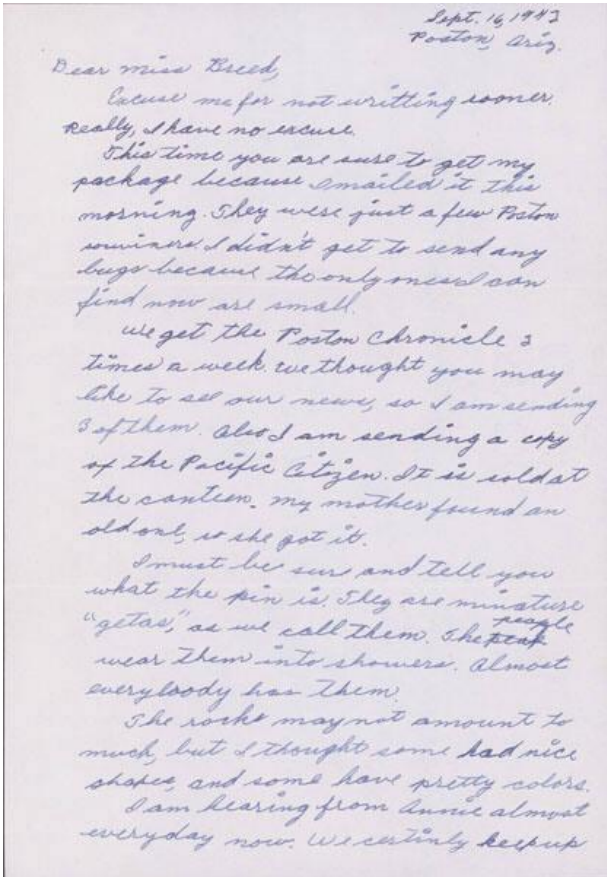 Sept. 16, 1942
Poston, Ariz.
Dear Miss Breed,
Excuse me for not writting sooner.
Really, I have no excuse.
This time you are sure to get my
package because I mailed it this
morning. They were just a few Poston
I didn't get to send any
bugs because the only ones I can
find now are small.
We get the Poston Chronicle 3
times a week. We thought you may
like to see our news, so I am sending
3 of them. Also I am sending a copy
of the Pacific Citizen. It is sold at
the canteen. My mother found an
old one, so she got it.
I must be sure and tell you
what the pin is. They are minature
"getas," as we call them. The people
wear them into showers. Almost
everybody has them.
The rocks may not amount to
much, but I thought some had nice
shapes, and some have pretty colors.
I am hearing from Annie almost
everyday now. We certinly keep up